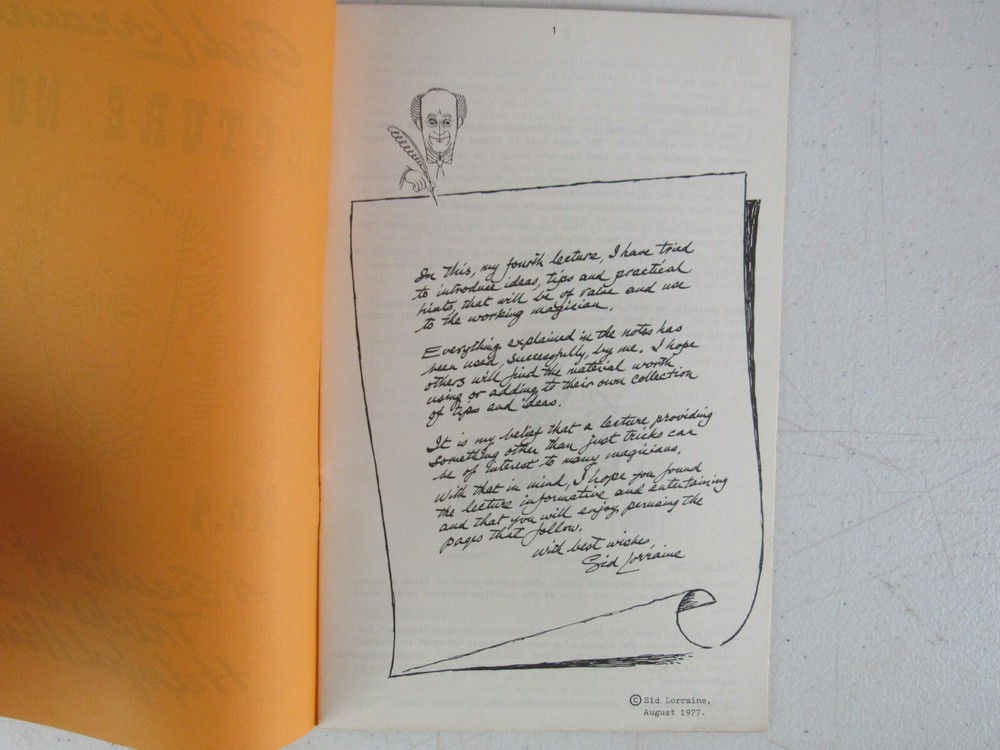 1
In this, my fourth lecture, I have tried
to introduce ideas, tips and practical
hints, that will be of value and use
to the working magician.
Everything explained in the notes has
been used, successfully, by me. I hope
others will find the material worth
using or adding to their own collection
of tips and ideas.
It is my belief that a lecture providing
something other than just tricks can
be of interest to many magicians.
With that in mind, I hope you found
the lecture informative and entertaining
and that you will enjoy perusing the
pages that follow.
With best wishes,
Sid Lorraine
© Sid Lorraine,
August 1977.